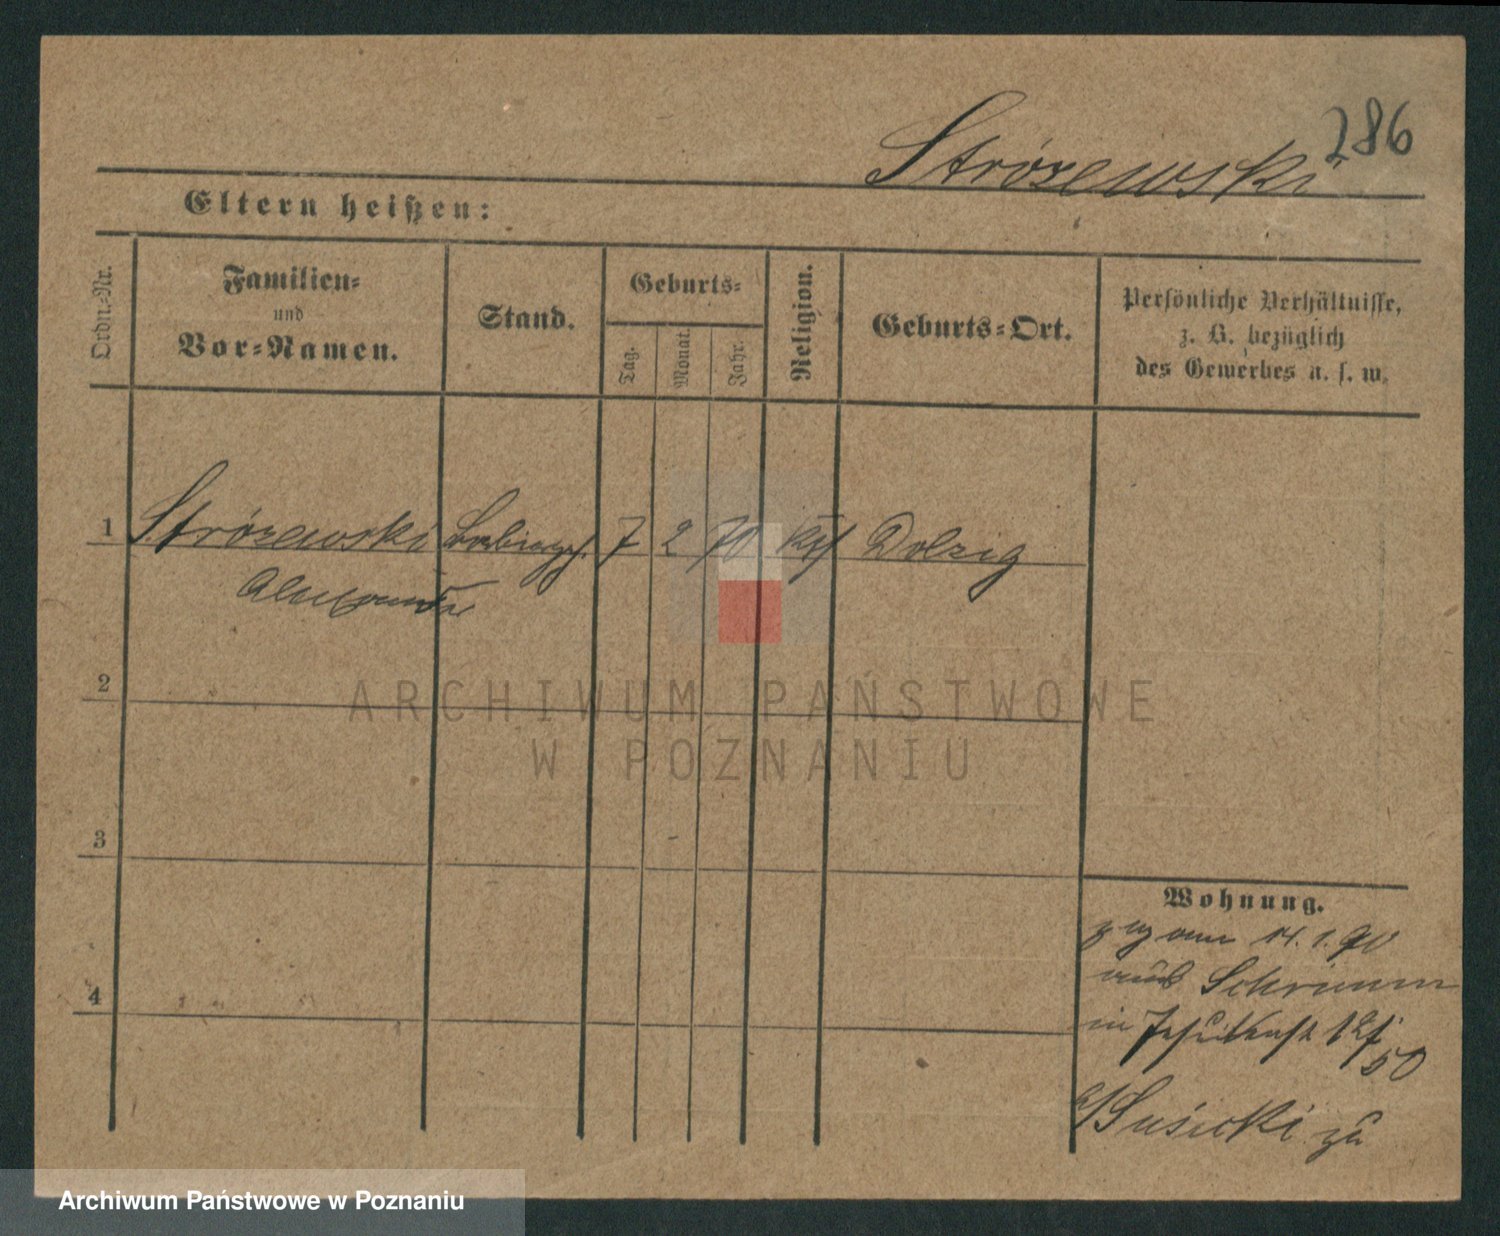 286
Strózewski
Eltern heißen:
Ordn.-Nr.
Familien-
und
Vor-Namen.
Stand.
Geburts-
Tag.
Monat.
Jahr.
Religion.
Geburts-Ort.
Persönliche Verhältnisse,
z. B. bezüglich
des Gewerbes u. s. w.
1 Strózewski Barbiergeh. 7 2 70 kth Dolzig
Alexander
2
3
4
Wohnung.
zug am 14. 1. 90
aus Schrimm
in Jesuitenstr 12
50
b/ Susicki zu
ARCHIWUM PAŃSTWOWE
W POZNANIU
Archiwum Państwowe w Poznaniu